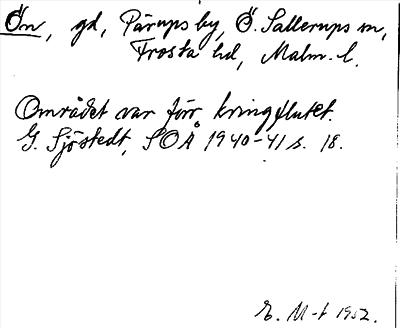 Ön, gd, Pärups by, Ö. Sallerups sn,
Frosta hd, Malm. l.
Området var förr kringflutet.
G. Sjöstedt, SOÅ 1940-41 s. 18.
E. M-t 1952.